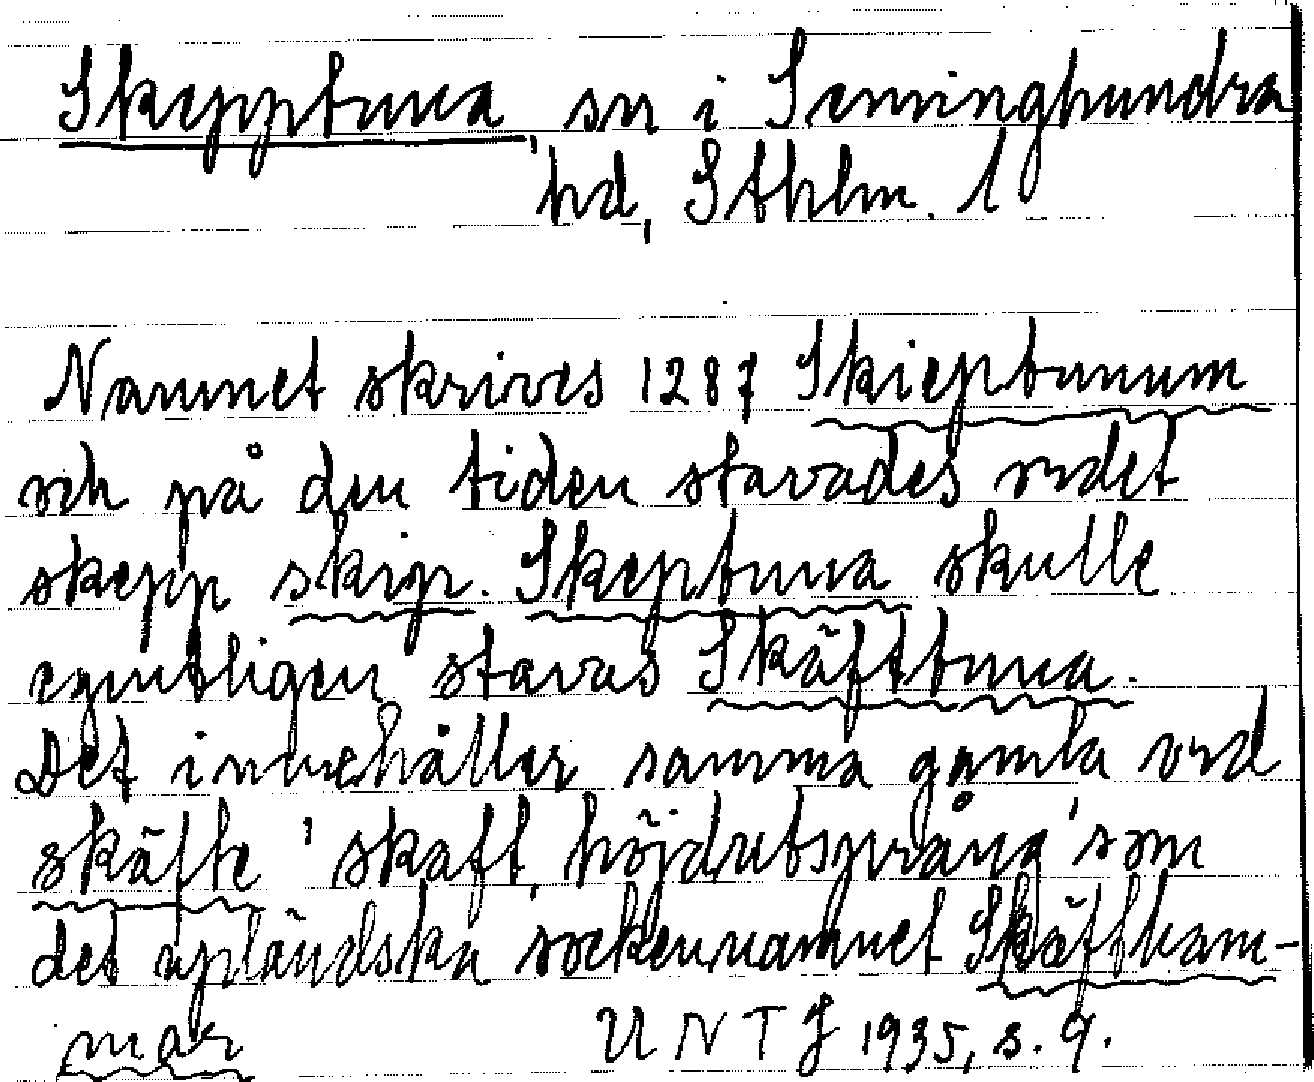 Skepptuna, sn i Seminghundra
hd, Sthlm. l
Namnet skrives 1287 Skieptunum
och på den tiden stavades ordet
skepp skip. Skeptuna skulle
egentligen stavas Skäfttuna.
Det innehåller samma gamla ord
skäfte 'skaft, höjdutsprång' som
det uppländska sockennamnet Skäftham-
mar UNTJ 1935, s. 9.